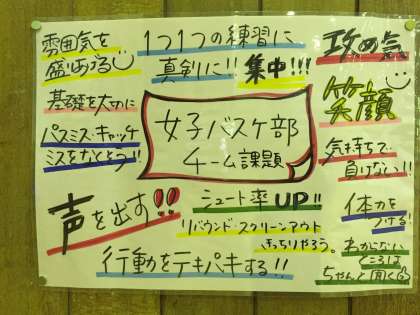 雰囲気を
盛りあげる
1つ1つの練習に
真剣に!! 集中!!!
攻めの気
笑顔
基礎を大切に
パスミス・キャッチ
ミスをなくそう!!
女子バスケ部
チーム課題
気持ちで
負けない!!
声を出す!!
シュート率UP!!
リバウンド・スクリーンアウト
きっちりやろう。
体力を
つける!
行動をテキパキする!!
わからない
ところは
ちゃんと聞く